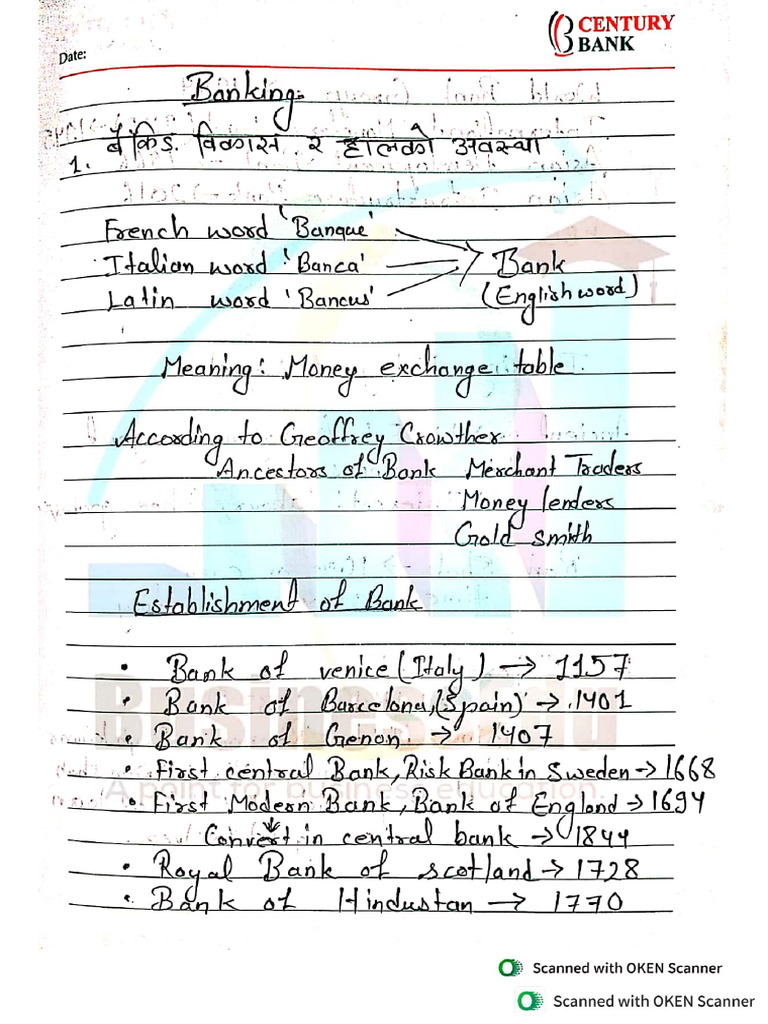 CENTURY
BANK
Date:
Banking:
1. बैंकिङ विकास र हालको अवस्था
French word 'Banque'
Italian word 'Banca' Bank
Latin word 'Bancus' (English word)
Meaning: Money exchange table
According to Geoffrey Crowther
Ancestors of Bank Merchant Traders
Money lenders
Gold smith
Establishment of Bank
• Bank of venice (Italy) → 1157
• Bank of Barcelona, (Spain) → 1401
• Bank of Genon → 1407
• First central Bank, Risk Bank in Sweden → 1668
• First Modern Bank, Bank of England → 1694
Convert in central bank → 1844
• Royal Bank of scotland → 1728
• Bank of Hindustan → 1770
A point for business education.
Scanned with OKEN Scanner
Scanned with OKEN Scanner